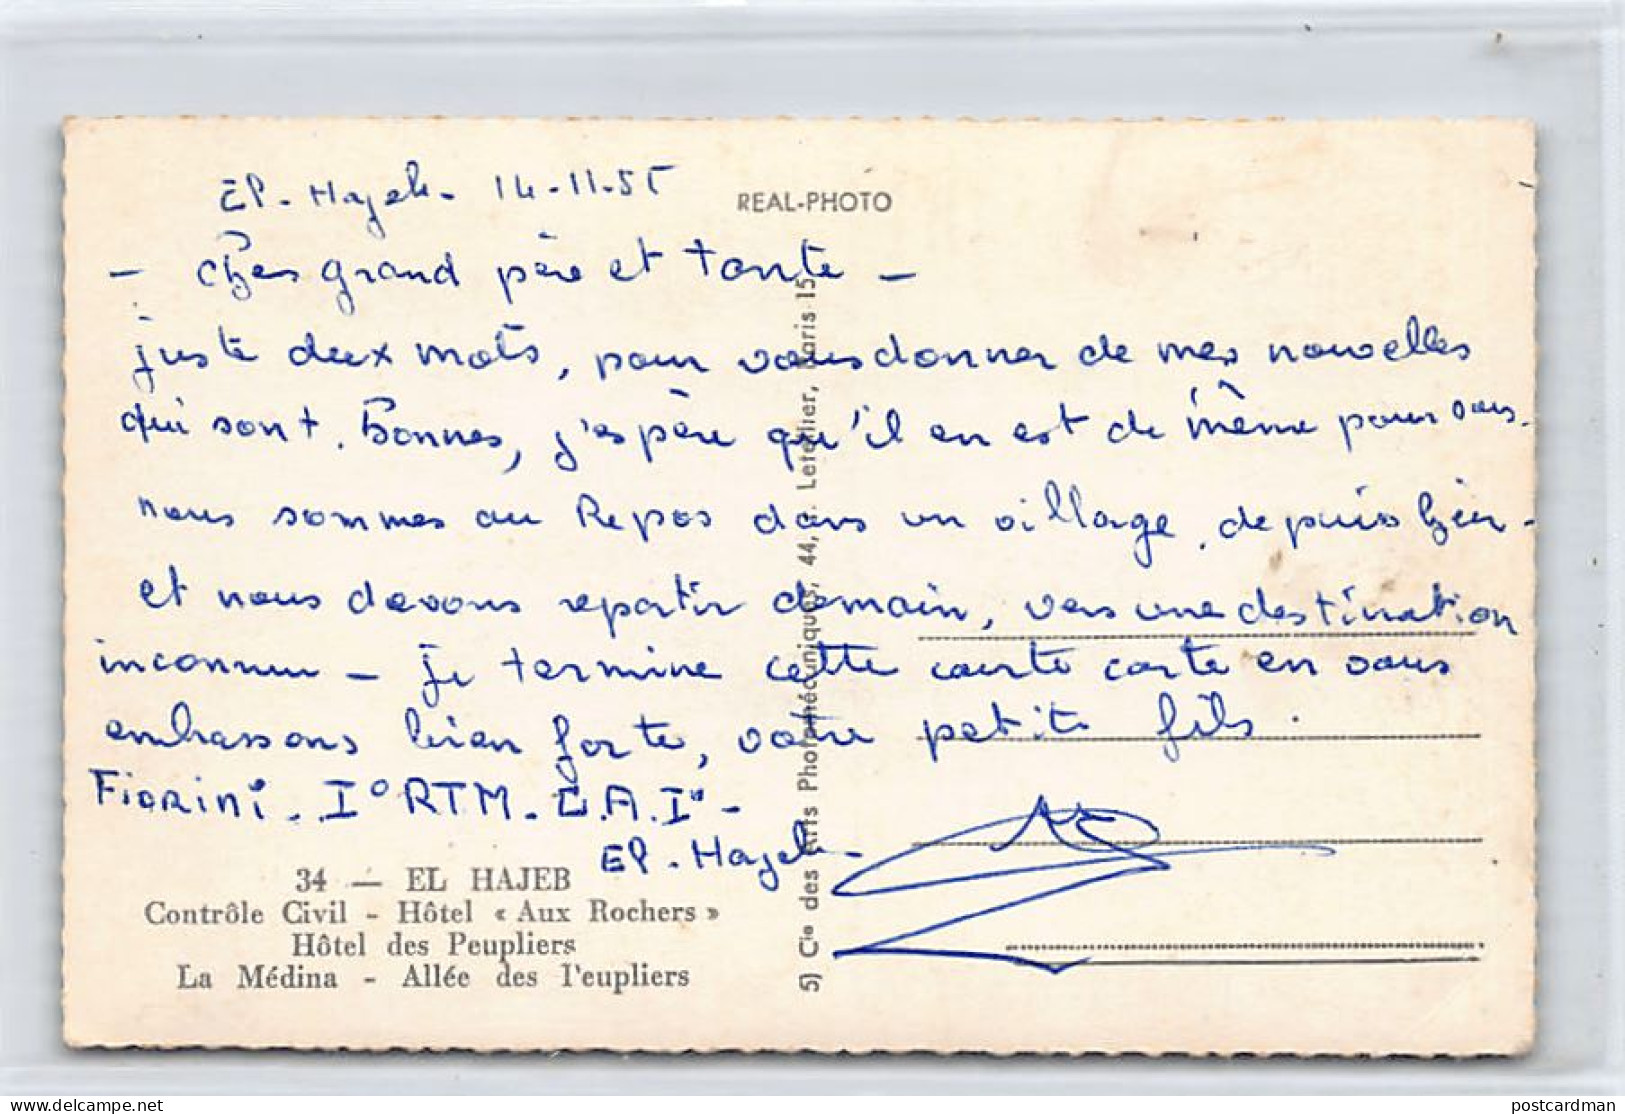 El-Hajeb- 14-11-55
REAL-PHOTO
- Chers grand père et tante -
juste deux mots, pour vous donner de mes nouvelles
qui sont. Bonnes, j'espère qu'il en est de même pour vous.
nous sommes au Repos dans un village, depuis hier -
et nous devons repartir demain, vers une destination
inconnue - je termine cette courte carte en vous
embrassons bien forte, votre petite fils.
Fiorini. I° RTM. C.A.I° -
El-Hajeb -
34 — EL HAJEB
Contrôle Civil - Hôtel « Aux Rochers »
Hôtel des Peupliers
La Médina - Allée des Peupliers
5) Cie des Arts Photomécaniques, 44, Letellier, Paris 15
postcardman